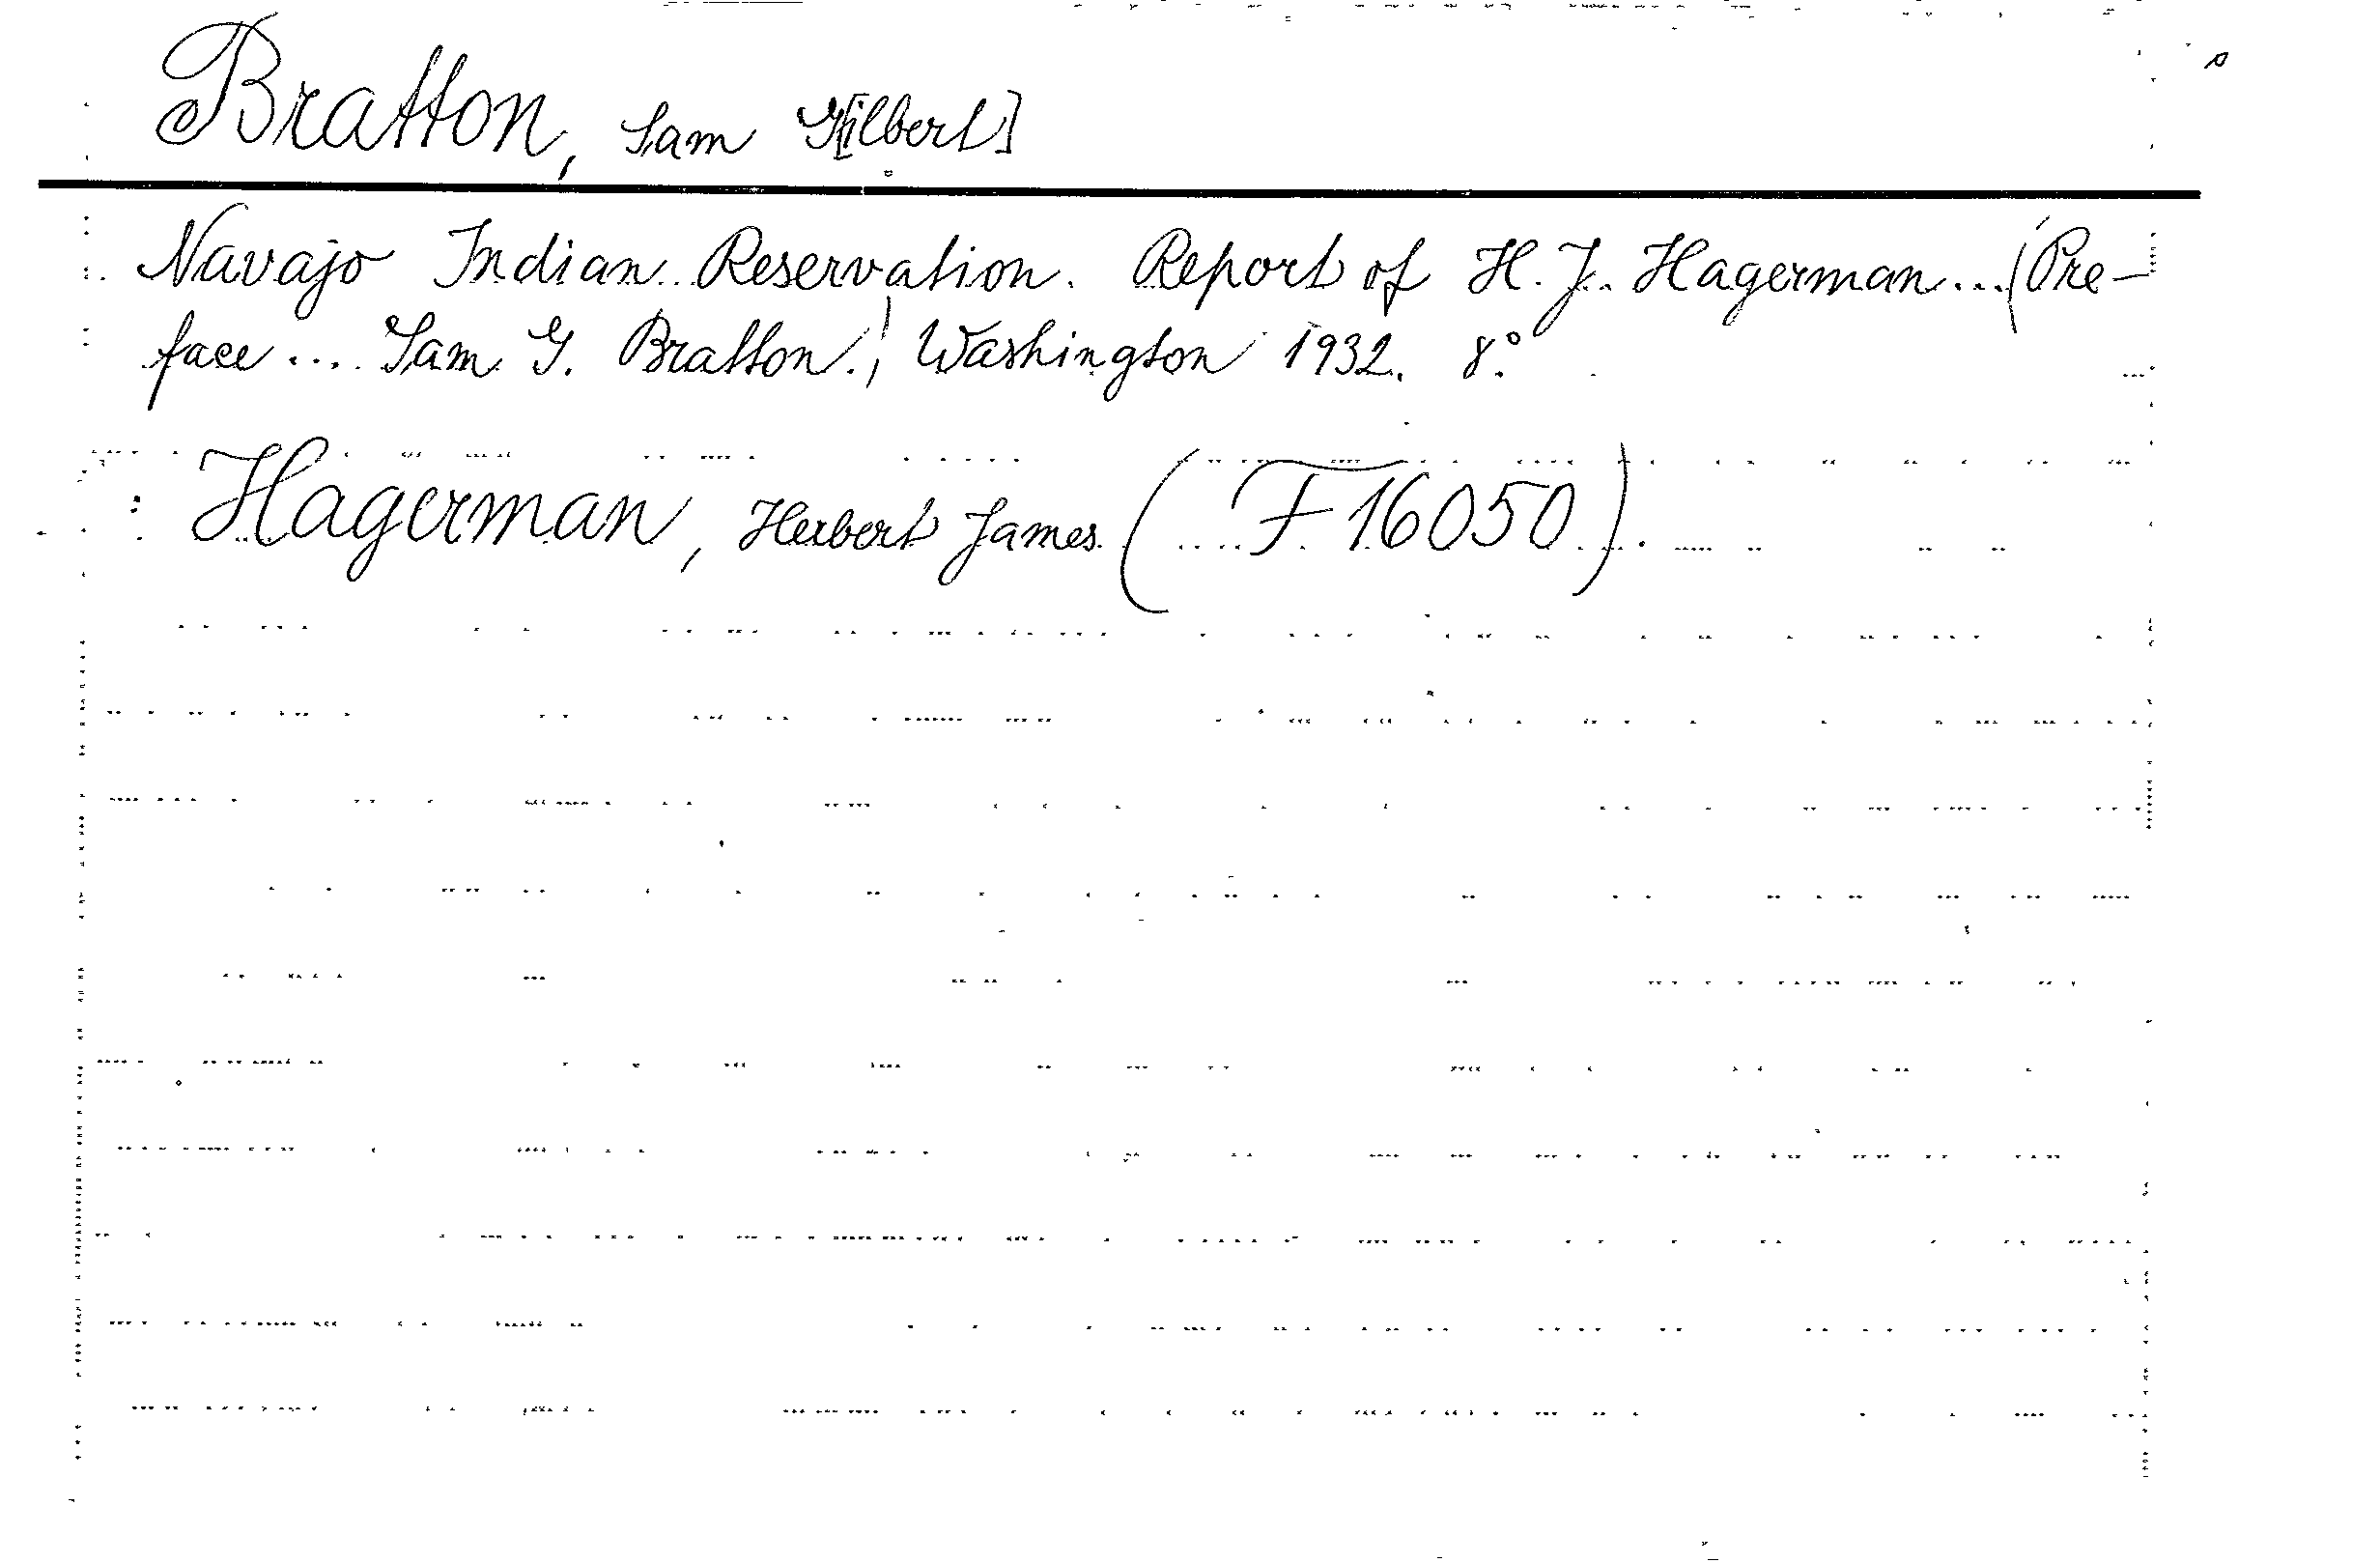 Bratton, Sam G[ilbert]
Navajo Indian Reservation. Report of H. J. Hagerman...(Pre-
face .... Sam G. Bratton.) Washington 1932. 8.°
: Hagerman, Herbert James (F 16050).